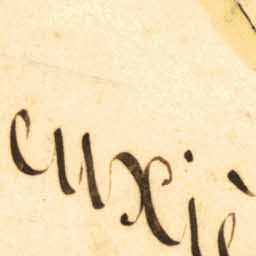 euxiè